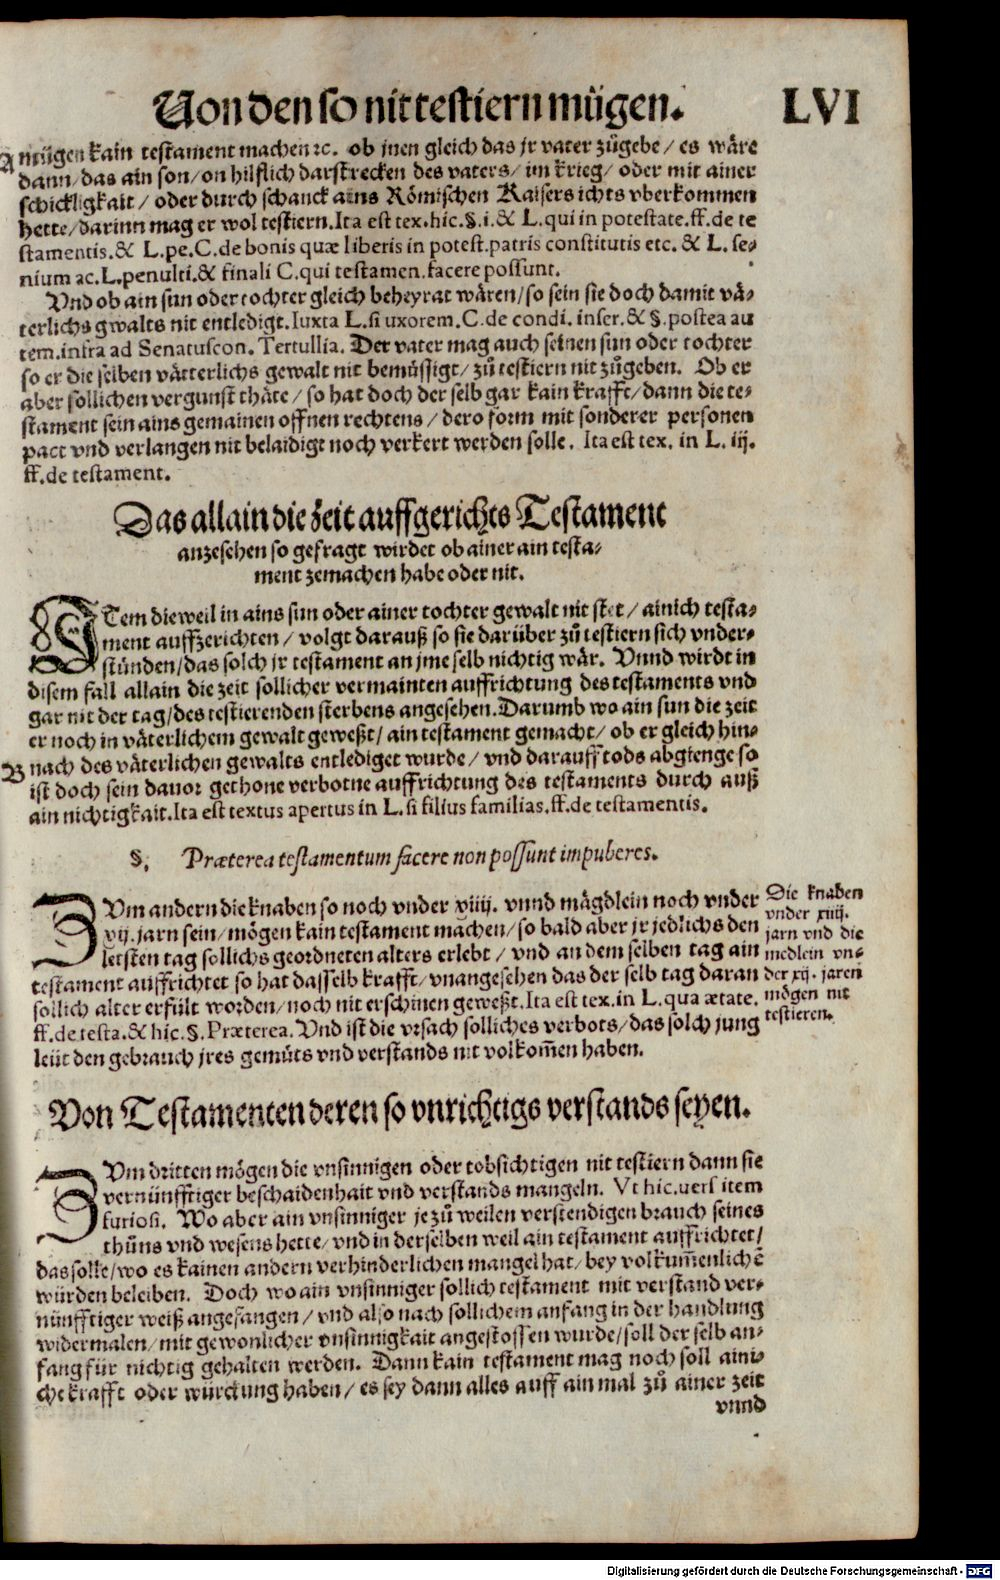 Von den so nit testiern mügen. LVI
A mügen kain testament machen ⁊c. ob jnen gleich das jr vater zůgebe / es wäre
dann / das ain son / on hilflich darstrecken des vaters / im krieg / oder mit ainer
schickligkait / oder durch schanck ains Römischen Kaisers ichts vberkommen
hette / darinn mag er wol testiern. Ita est tex. hic. §. i. & L. qui in potestate. ff. de te
stamentis. & L. pe. C. de bonis quæ liberis in potest. patris constitutis etc. & L. se-
nium ac. L. penulti. & finali C. qui testamen. facere possunt.
Vnd ob ain sun oder tochter gleich beheyrat wären / so sein sie doch damit vä-
terlichs gwalts nit entledigt. Iuxta L. si uxorem. C. de condi. inser. & §. postea au
tem. infra ad Senatuscon. Tertullia. Der vater mag auch seinen sun oder tochter
so er die selben vätterlichs gewalt nit bemüssigt / zů testiern nit zůgeben. Ob er
aber sollichen vergunst thäte / so hat doch der selb gar kain krafft / dann die te-
stament sein ains gemainen offnen rechtens / dero form mit sonderer personen
pact vnd verlangen nit belaidigt noch verkert werden solle. Ita est tex. in L. iij.
ff. de testament.
Das allain die zeit auffgerichts Testament
anzesehen so gefragt wirdet ob ainer ain testa-
ment zemachen habe oder nit.
ITem dieweil in ains sun oder ainer tochter gewalt nit stet / ainich testa-
ment auffzerichten / volgt darauß so sie darüber zů testiern sich vnder-
stünden / das solch jr testament an jme selb nichtig wär. Vnnd wirdt in
disem fall allain die zeit sollicher vermainten auffrichtung des testaments vnd
gar nit der tag / des testierenden sterbens angesehen. Darumb wo ain sun die zeit
er noch in väterlichem gewalt geweßt / ain testament gemacht / ob er gleich hin-
B nach des väterlichen gewalts entlediget wurde / vnd darauff tods abgienge so
ist doch sein dauor gethone verbotne auffrichtung des testaments durch auß
ain nichtigkait. Ita est textus apertus in L. si filius familias. ff. de testamentis.
§. Præterea testamentum facere non possunt impuberes.
ZVm andern die knaben so noch vnder xiiij. vnnd mägdlein noch vnder
xij. jarn sein / mögen kain testament machen / so bald aber jr jedlichs den
letsten tag sollichs geordneten alters erlebt / vnd an dem selben tag ain
testament auffrichtet so hat dasselb krafft / vnangesehen das der selb tag daran
sollich alter erfült worden / noch nit erschinen geweßt. Ita est tex. in L. qua ætate.
ff. de testa. & hic. §. Præterea. Vnd ist die vrsach solliches verbots / das solch jung
leüt den gebrauch jres gemüts vnd verstands nit volkom̃en haben.
Die knaben
vnder xiiij.
jarn vnd die
medlein vn-
der xij. jaren
mögen nit
testieren.
Von Testamenten deren so vnrichtigs verstands seyen.
ZVm dritten mögen die vnsinnigen oder tobsichtigen nit testiern dann sie
vernünfftiger beschaidenhait vnd verstands mangeln. Vt hic. uers item
furiosi. Wo aber ain vnsinniger je zů weilen verstendigen brauch seines
thůns vnd wesens hette / vnd in derselben weil ain testament auffrichtet /
das solle / wo es kainen andern verhinderlichen mangel hat / bey volkum̃enlichē
würden beleiben. Doch wo ain vnsinniger sollich testament mit verstand ver-
nünfftiger weiß angefangen / vnd also nach sollichem anfang in der handlung
widermalen / mit gewonlicher vnsinnigkait angestossen wurde / soll der selb an-
fang für nichtig gehalten werden. Dann kain testament mag noch soll aini-
che krafft oder würckung haben / es sey dann alles auff ain mal zů ainer zeit
vnnd
Digitalisierung gefördert durch die Deutsche Forschungsgemeinschaft - DFG